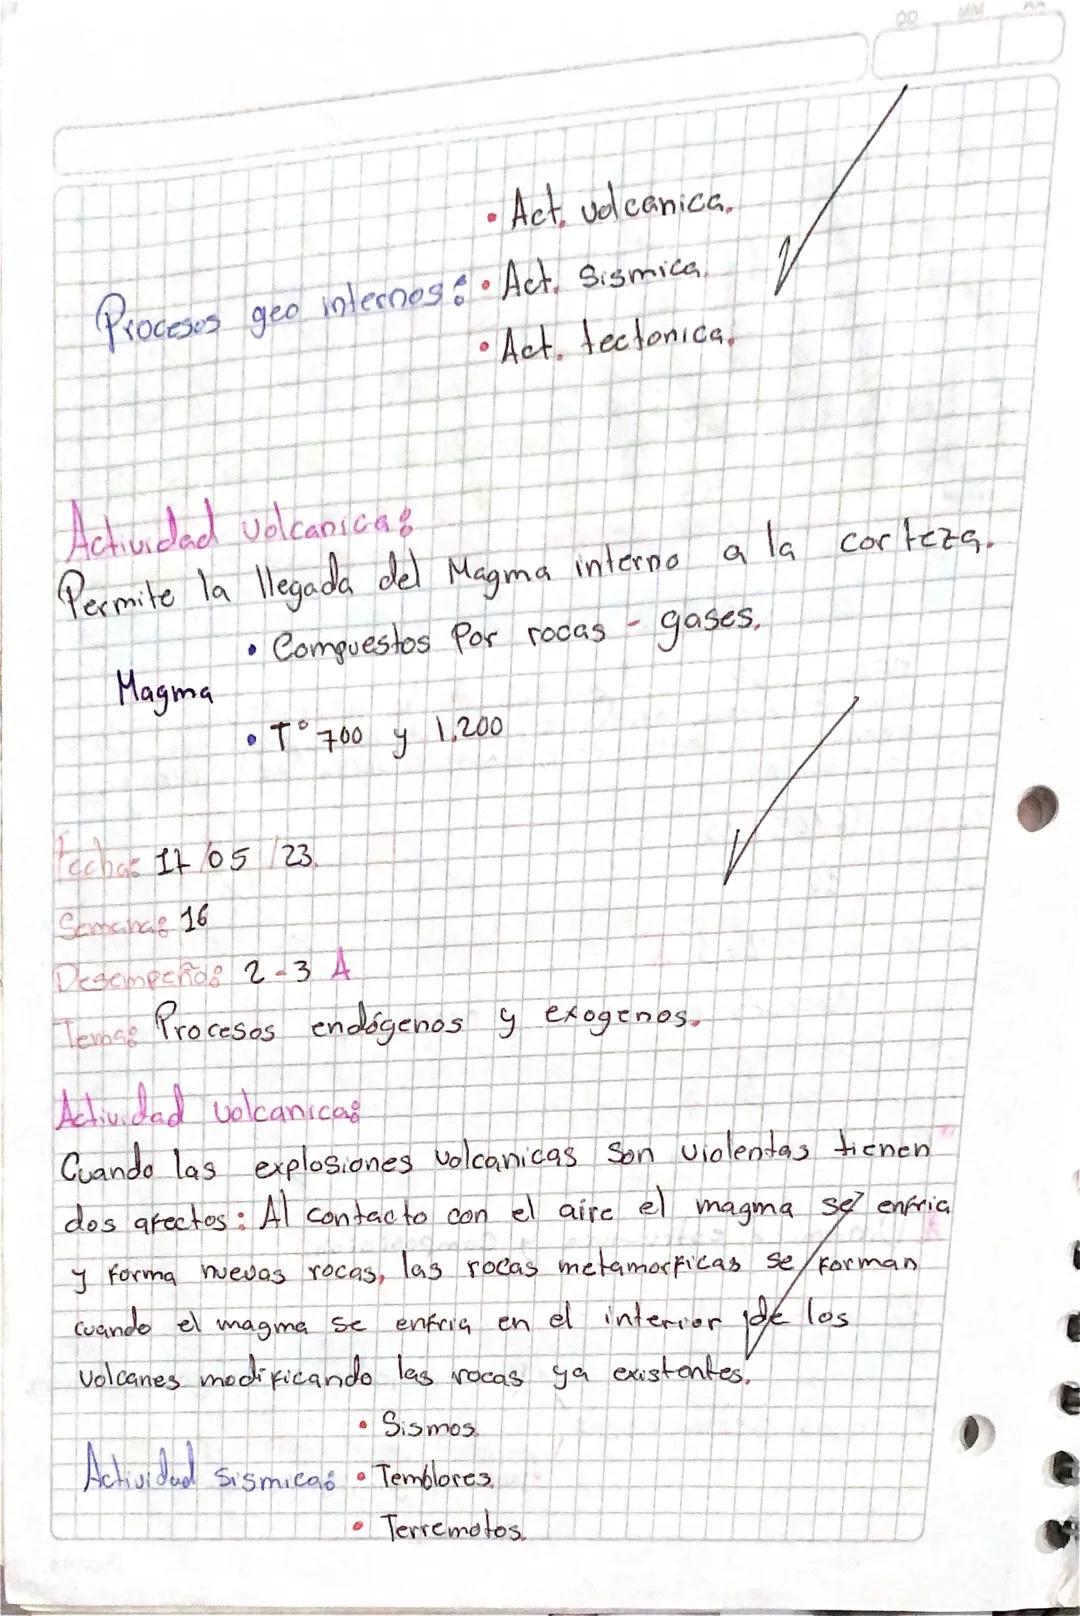 DD MM AA
• Act. volcanica.
Procesos geo internos: • Act. Sismica.
• Act. tectonica.
Actividad volcanica:
Permite la llegada del Magma interno a la corteza.
• Compuestos Por rocas - gases.
Magma
• T° 700 y 1.200
Fecha: 17/05/23.
Semana: 16
Desempeño: 2-3 A
Tema: Procesos endógenos y exogenos.
Actividad volcanica:
Cuando las explosiones volcanicas son violentas tienen
dos afectos: Al contacto con el aire el magma se enfria
y forma nuevas rocas, las rocas metamorficas se forman
cuando el magma se enfria en el interior de los
volcanes modificando las rocas ya existentes.
• Sismos.
Actividad sismica: • Temblores.
• Terremotos.